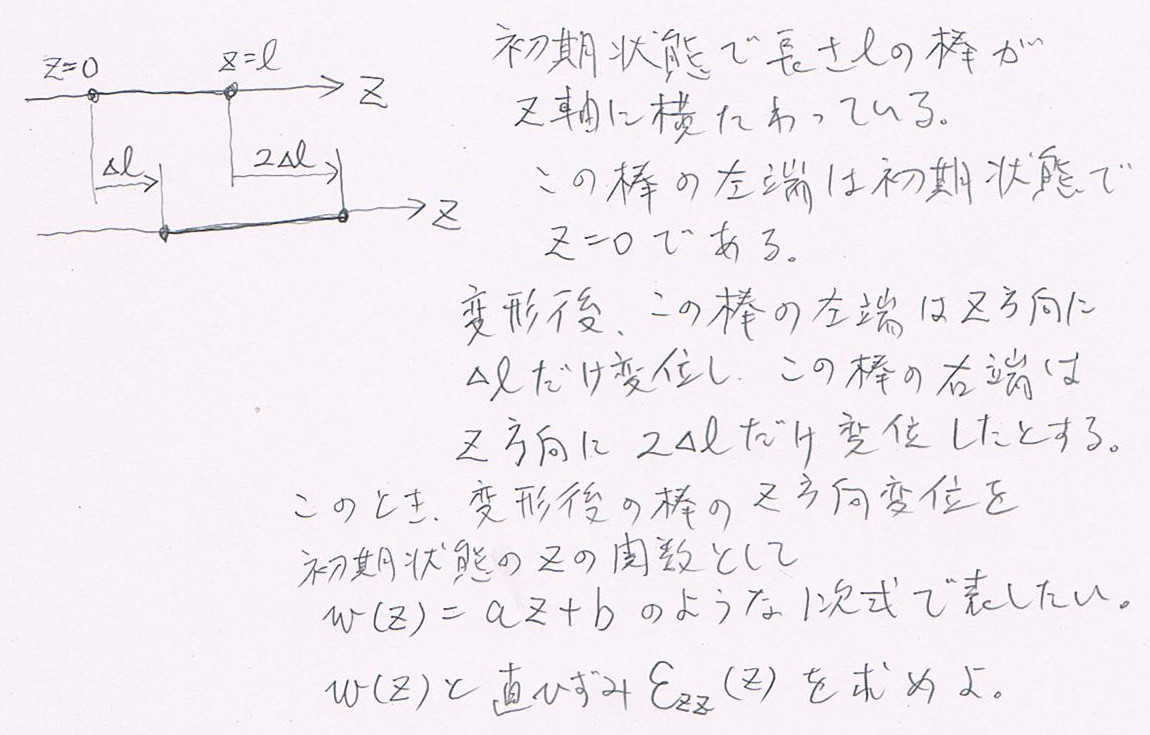 z=0
z=l
z
Δl
2Δl
z
初期状態で長さlの棒が
z軸に横たわっている。
この棒の左端は初期状態で
z=0である。
変形後、この棒の左端はz方向に
Δlだけ変位し、この棒の右端は
z方向に2Δlだけ変位したとする。
このとき、変形後の棒のz方向変位を
初期状態のzの関数として
w(z)=az+bのような1次式で表したい。
w(z)と直ひずみεzz(z)を求めよ。